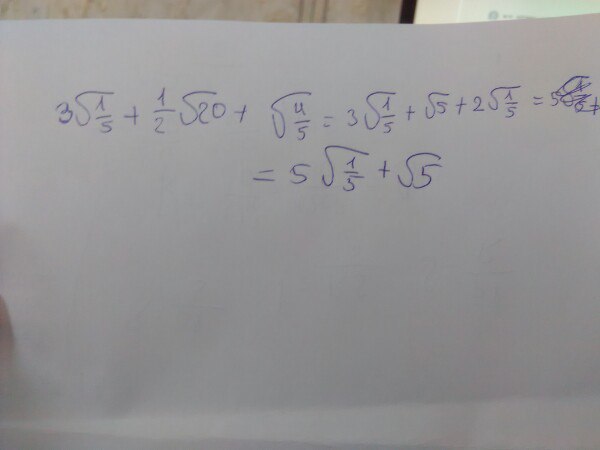 3√1/5 + 1/2 √20 + √4/5 = 3√1/5 + √5 + 2√1/5 = 5
= 5√1/5 + √5